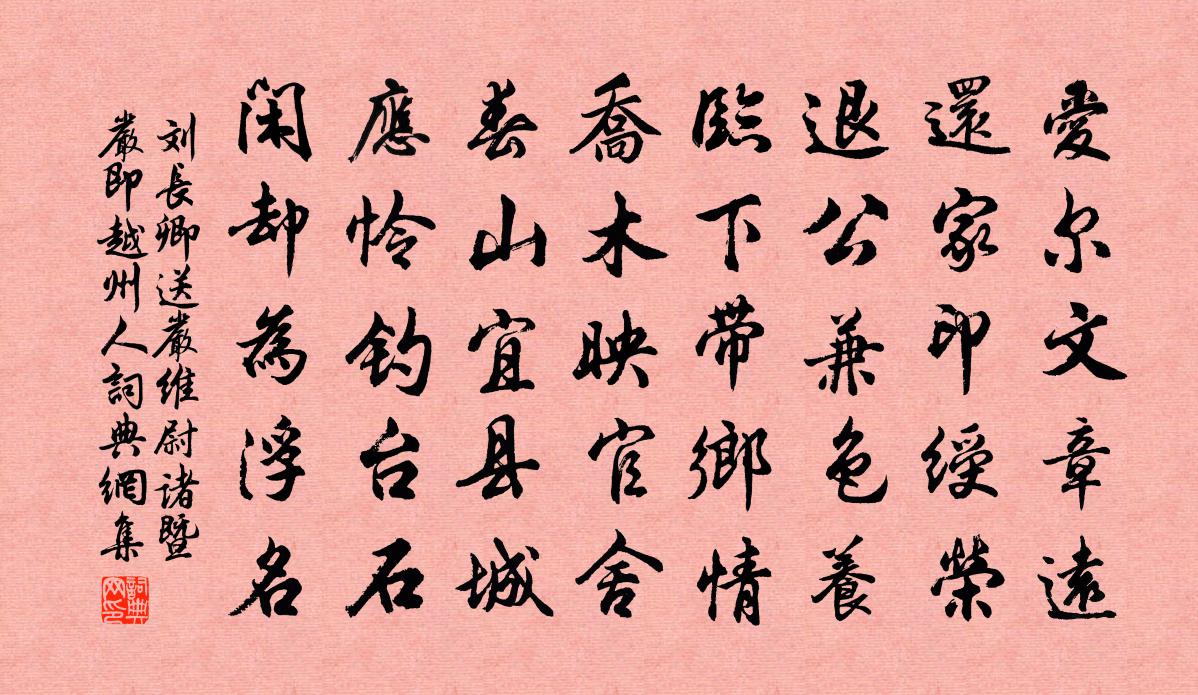 愛尔文章遠
還家印綬榮
退公兼色養
臨下带鄉情
喬木映官舍
春山宜县城
應怜钓台石
闲却為浮名
刘長卿送嚴維尉诸暨
嚴即越州人詞典網集
詞典网印